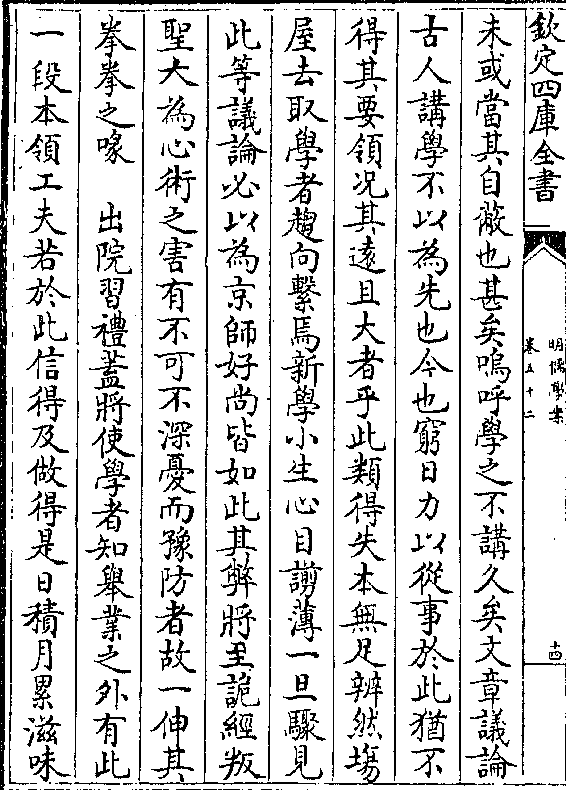 欽定四庫全書
明儒學案
卷五十二
十四
未或當其自蔽也甚矣嗚呼學之不講久矣文章議論
古人講學不以為先也今也窮日力以從事於此猶不
得其要領况其遠且大者乎此類得失本無足辨然塲
屋去取學者趨向繫焉新學小生心目謭薄一旦驟見
此等議論必以為京師好尚皆如此其弊將至詭經叛
聖大為心術之害有不可不深憂而豫防者故一伸其
拳拳之喙　出院習禮蓋將使學者知舉業之外有此
一段本領工夫若於此信得及做得是日積月累滋味